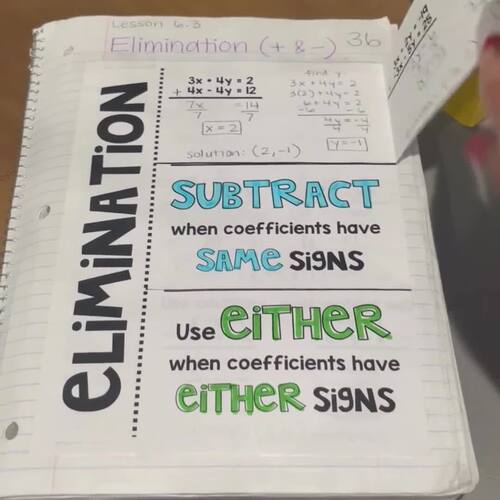 Lesson 6.3
Elimination (+ & -) 36
ELIMINATION
3x + 4y = 2
+ 4x - 4y = 12
7x = 14
7 7
x = 2
solution: (2, -1)
find y
3x + 4y = 2
3(2) + 4y = 2
6 + 4y = 2
-6 -6
4y = -4
4 4
y = -1
SUBTRACT
when coefficients have
SAME SIGNS
Use EITHER
when coefficients have
EITHER SIGNS